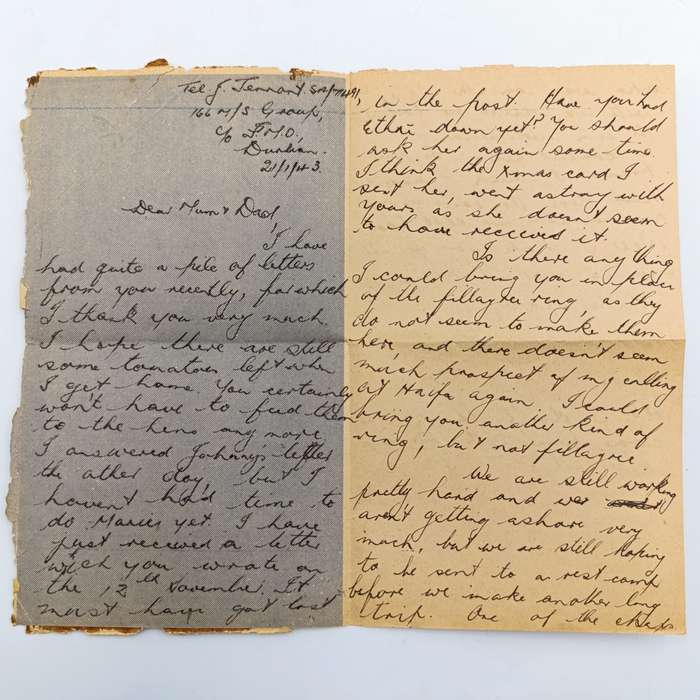 Tel J. Tennant
166 M/S Group,
c/o F.M.O,
Durban.
21/1/43.
Dear Mum & Dad,
I have
had quite a pile of letters
from you recently, for which
I thank you very much.
I hope there are still
some tomatoes left when
I get home. You certainly
won't have to feed them
to the hens any more.
I answered Johnny's letter
the other day, but I
haven't had time to
do Maries yet. I have
just received a letter
which you wrote on
the 12th November. It
must have got lost
in the post. Have you had
Ethie down yet? You should
ask her again some time.
I think the Xmas card I
sent her, went astray with
yours, as she doesn't seem
to have received it.
Is there anything
I could bring you in place
of the fillagree ring, as they
do not seem to make them
here, and there doesn't seem
much prospect of my calling
at Haifa again. I could
bring you another kind of
ring, but not fillagree
We are still working
pretty hard and we
aren't getting ashore very
much, but we are still hoping
to be sent to a rest camp
before we make another long
trip. One of the chaps